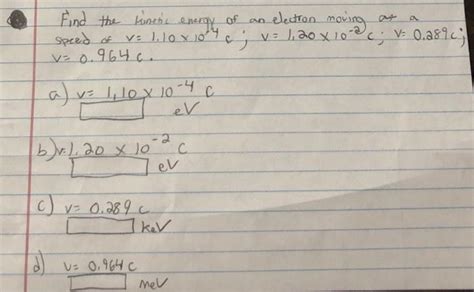 Find the kinetic energy of an electron moving at a
speed of v= 1.10 x 10⁻⁴ c ; v= 1.20 x 10⁻² c ; v= 0.289c ;
v= 0.964 c .
a) v= 1.10 x 10⁻⁴ c
eV
b) v= 1.20 x 10⁻² c
eV
c) v= 0.289 c
keV
d) v= 0.964 c
meV